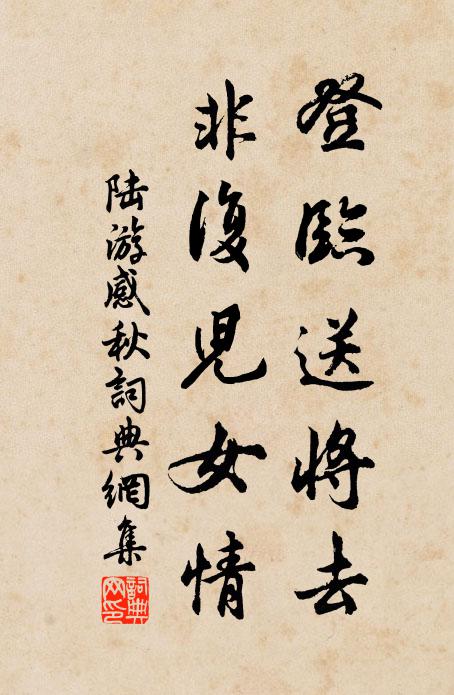 登臨送將去
非復兒女情
陆游感秋詞典網集
詞典網印